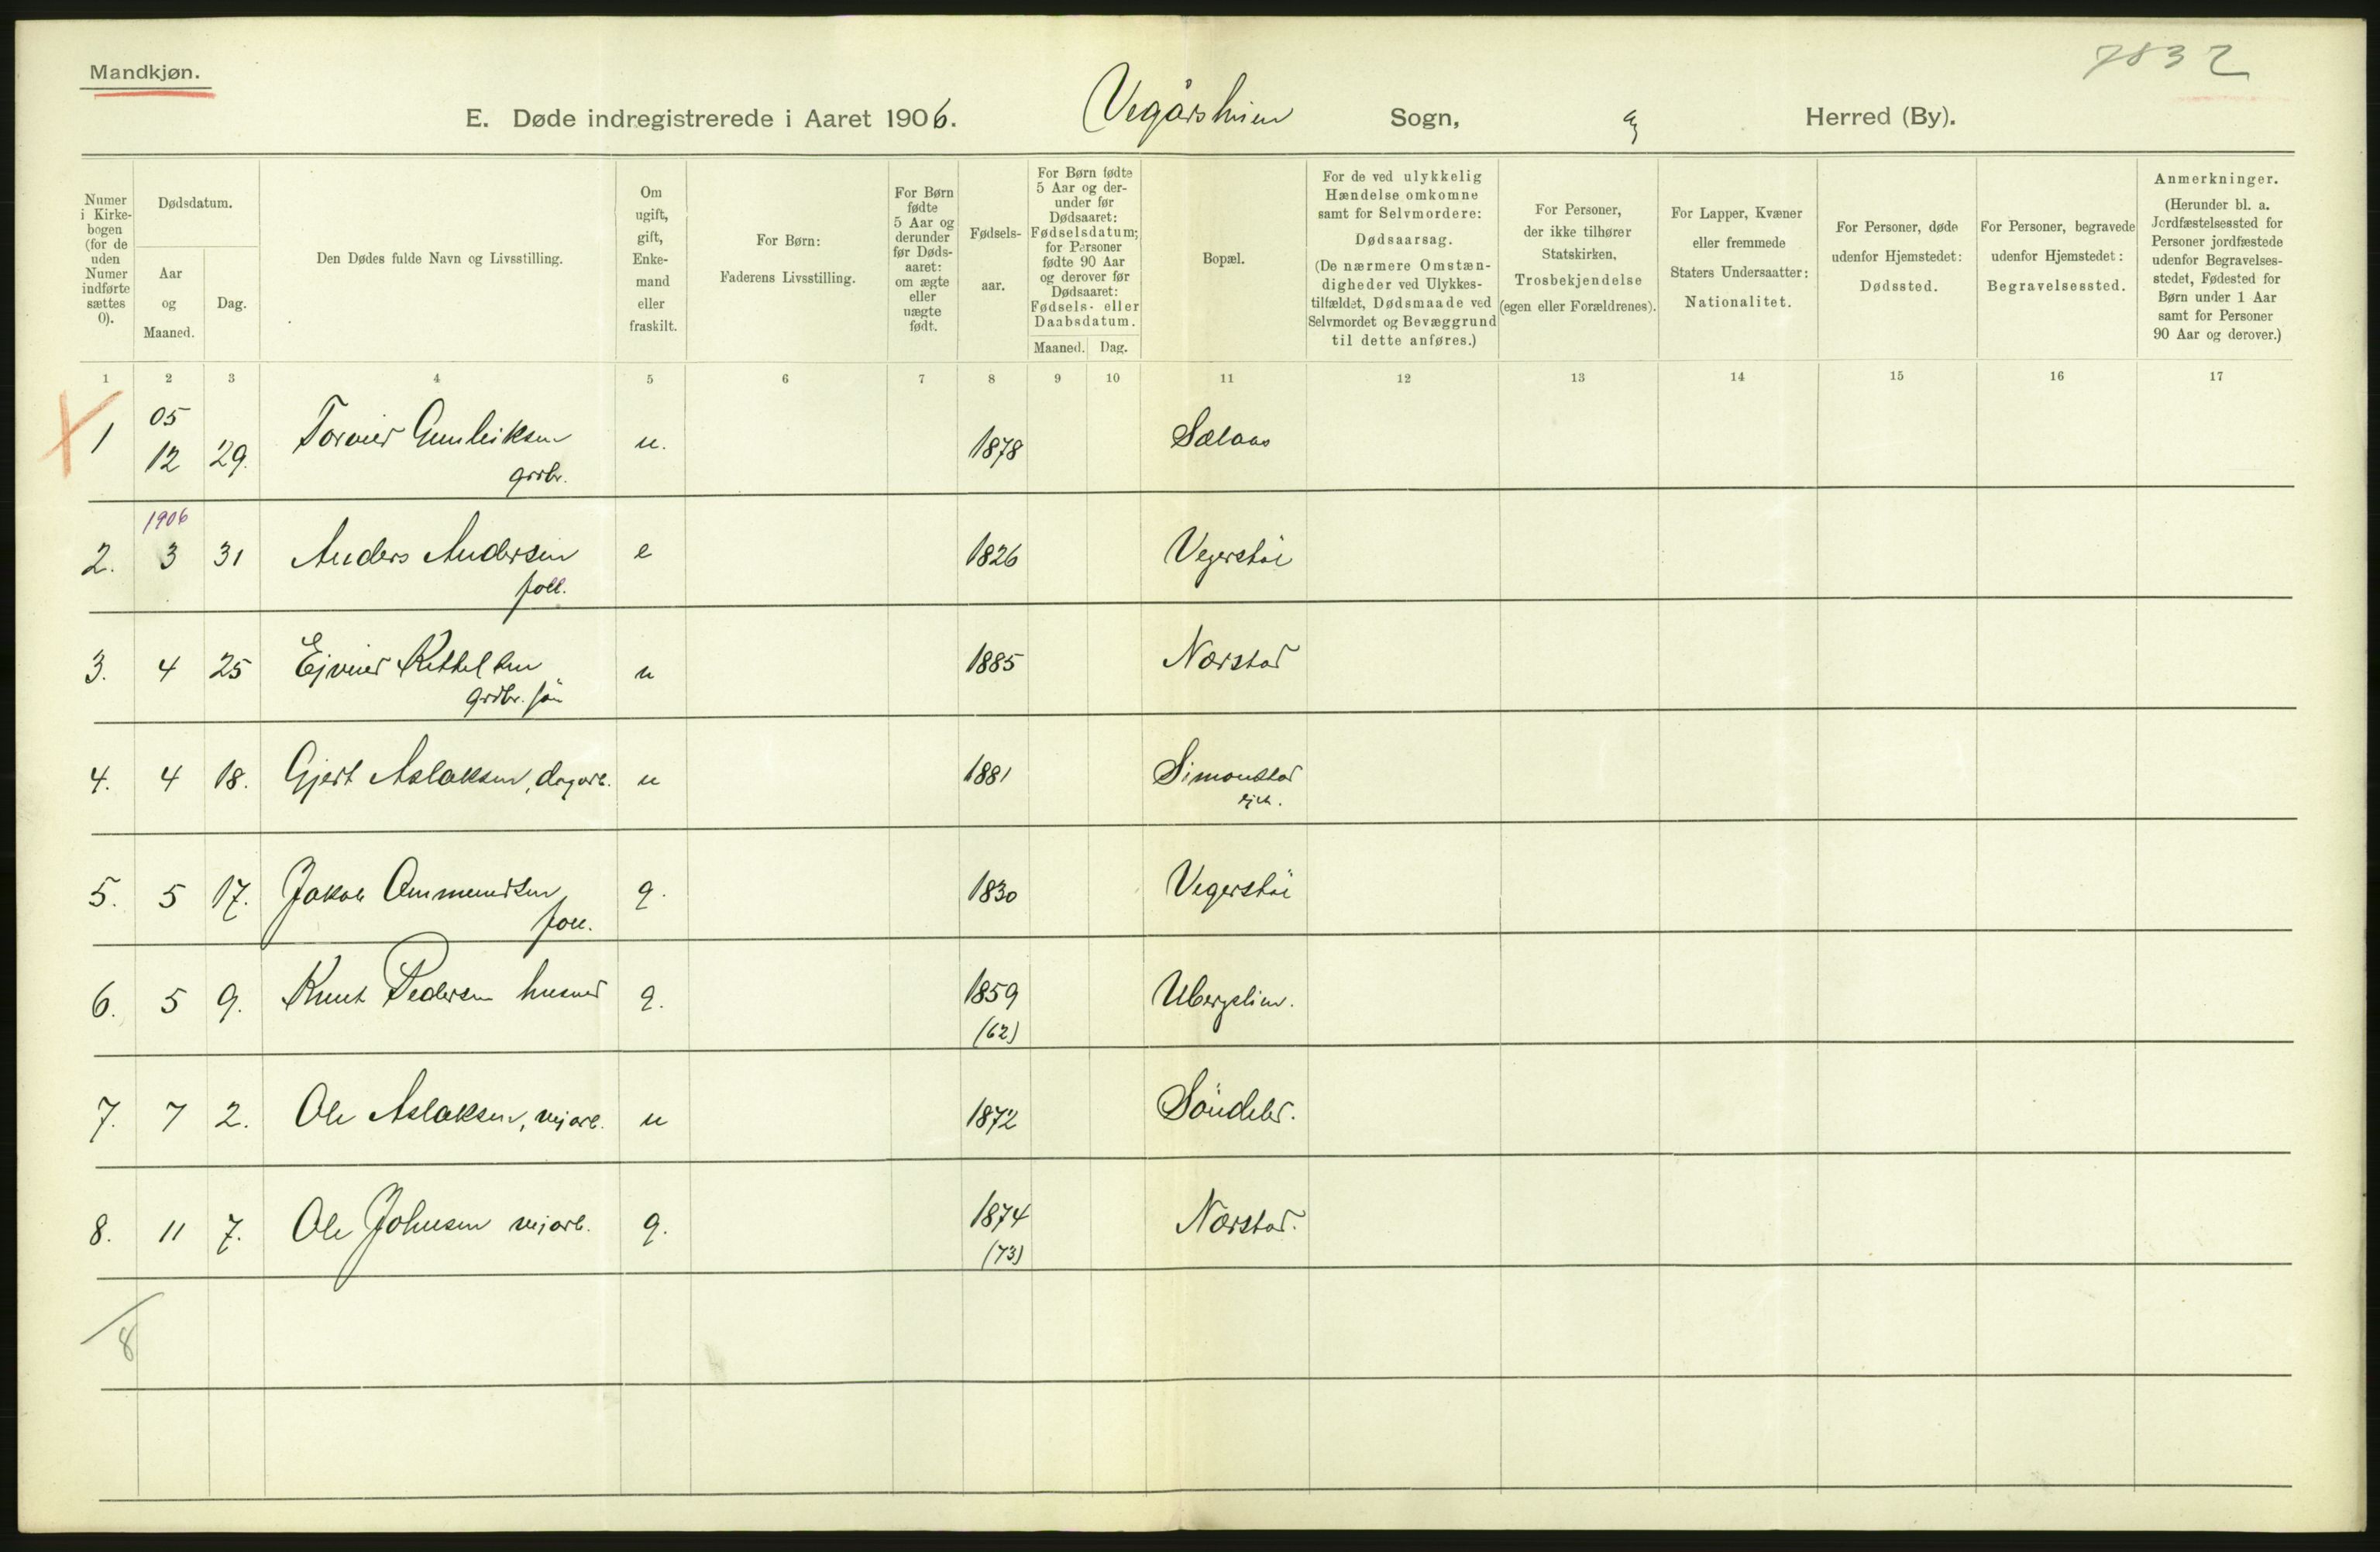 Mandkjøn.
7832
E. Døde indregistrerede i Aaret 1906. Vegårshien Sogn, Herred (By).
Numer i Kirkebogen (for de uden Numer indførte sættes 0).
Dødsdatum.
Aar og Maaned.
Dag.
Den Dødes fulde Navn og Livsstilling.
Om ugift, gift, Enkemand eller fraskilt.
For Børn: Faderens Livsstilling.
For Børn fødte 5 Aar og derunder før Dødsaaret: om ægte eller uægte født.
Fødselsaar.
For Børn fødte 5 Aar og derunder før Dødsaaret: Fødselsdatum; for Personer fødte 90 Aar og derover før Dødsaaret: Fødsels- eller Daabsdatum.
Maaned. Dag.
Bopæl.
For de ved ulykkelig Hændelse omkomne samt for Selvmordere: Dødsaarsag. (De nærmere Omstændigheder ved Ulykkestilfældet, Dødsmaade ved Selvmordet og Bevæggrund til dette anføres.)
For Personer, der ikke tilhører Statskirken, Trosbekjendelse (egen eller Forældrenes).
For Lapper, Kvæner eller fremmede Staters Undersaatter: Nationalitet.
For Personer, døde udenfor Hjemstedet: Dødssted.
For Personer, begravede udenfor Hjemstedet: Begravelsessted.
Anmerkninger. (Herunder bl. a. Jordfæstelsessted for Personer jordfæstede udenfor Begravelsesstedet, Fødested for Børn under 1 Aar samt for Personer 90 Aar og derover.)
1 2 3 4 5 6 7 8 9 10 11 12 13 14 15 16 17
05
1 12 29. Torvier Gunleiksen u. 1878 Selaas
grbr.
1906
2. 3 31 Anders Andersen e 1826 Vegerstöe
foll.
3. 4 25 Ejvind Kittelsen u 1885 Nærstad
grdbr. sön
4. 4 18. Gjert Aslaksen, dagarb. u 1881 Simonstad
ejet.
5. 5 17. Jakob Ommundsen g. 1830 Vegerstöe
foll.
6. 5 9. Knut Pedersen husmd g. 1859 Ubergslien.
(62)
7. 7 2. Ole Aslaksen, vejarb. u 1872 Söndeled.
8. 11 7. Ole Johnsen vejarb. g. 1874 Nærstad.
(73)
8